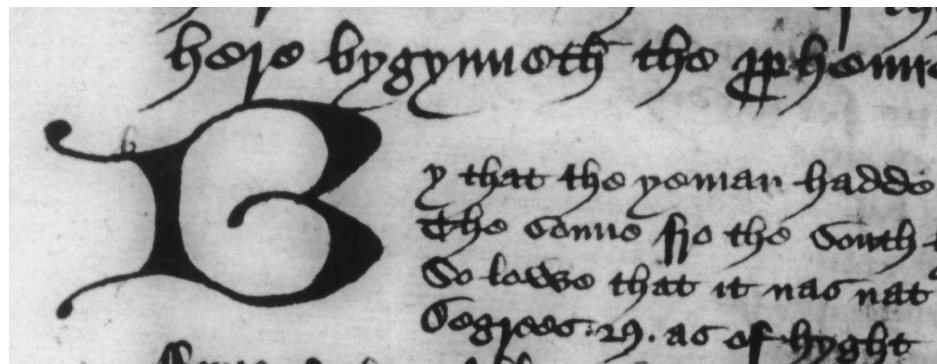 here bygynneth the
By that the yeman hadde
The sonne fro the South
So lowe that it nas nat
Degrees .29. as of hyght